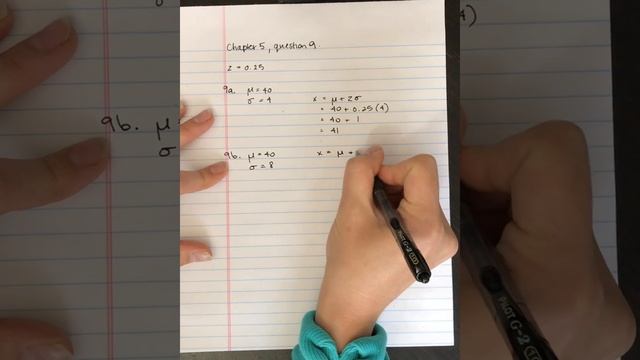 Chapter 5, question 9.
z = 0.25
9a. μ = 40
σ = 4
x = μ + zσ
= 40 + 0.25(4)
= 40 + 1
= 41
9b. μ = 40
σ = 8
x = μ +
PILOT G-2